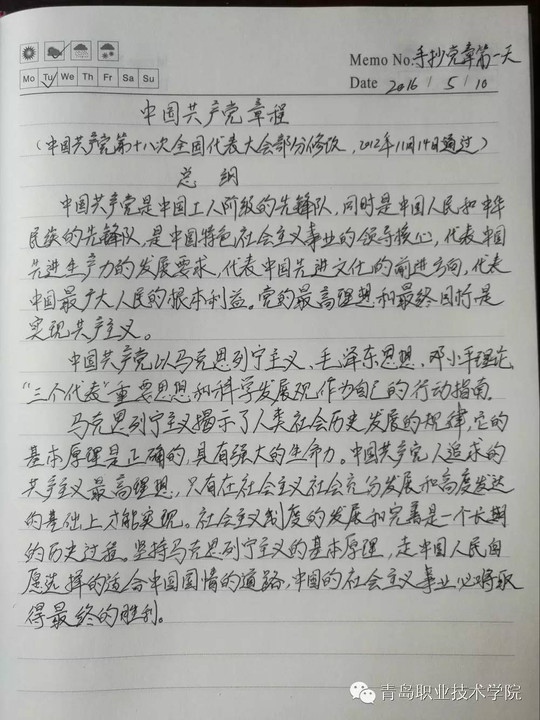 Memo No. 手抄党章第一天
Mo Tu We Th Fr Sa Su
Date 2016 / 5 / 10
中国共产党章程
(中国共产党第十八次全国代表大会部分修改,2012年11月14日通过)
总纲
中国共产党是中国工人阶级的先锋队,同时是中国人民和中华
民族的先锋队,是中国特色社会主义事业的领导核心,代表中国
先进生产力的发展要求,代表中国先进文化的前进方向,代表
中国最广大人民的根本利益。党的最高理想和最终目标是
实现共产主义。
中国共产党以马克思列宁主义、毛泽东思想、邓小平理论、
“三个代表”重要思想和科学发展观作为自己的行动指南。
马克思列宁主义揭示了人类社会历史发展的规律,它的
基本原理是正确的,具有强大的生命力。中国共产党人追求的
共产主义最高理想,只有在社会主义社会充分发展和高度发达
的基础上才能实现。社会主义制度的发展和完善是一个长期
的历史过程。坚持马克思列宁主义的基本原理,走中国人民自
愿选择的适合中国国情的道路,中国的社会主义事业必将取
得最终的胜利。
青岛职业技术学院